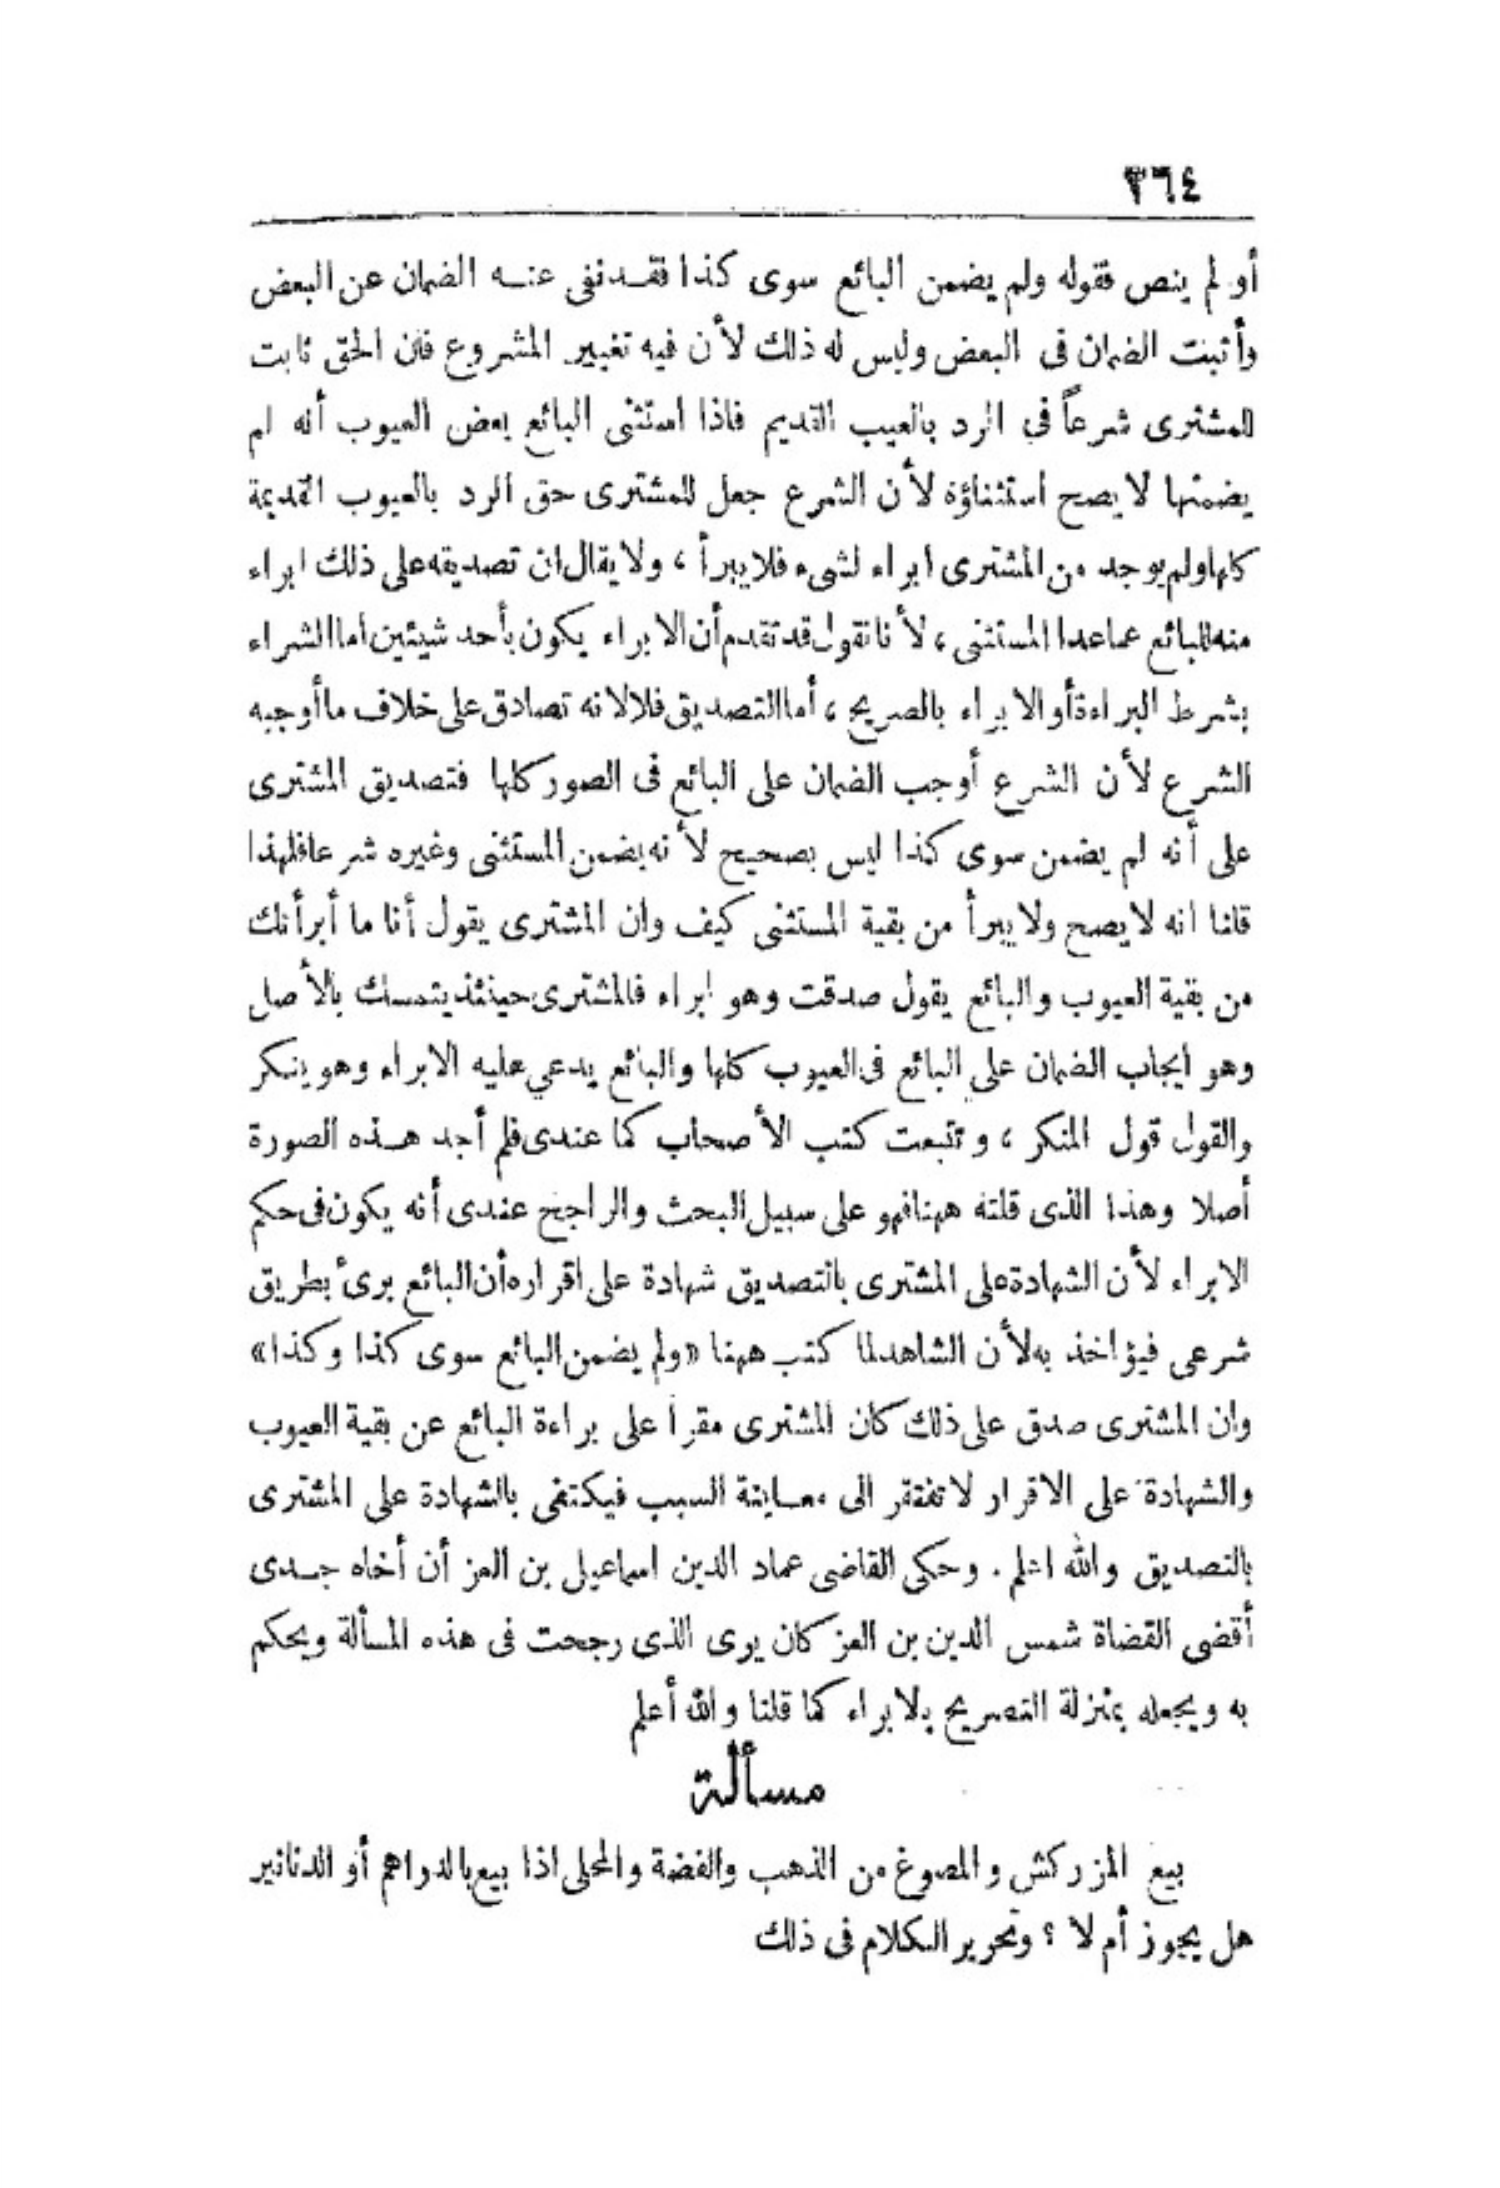 ٣٦٤
أو لم ينص فقوله ولم يضمن البائع سوى كذا فقد نفى عنه الضمان عن البعض
وأثبت الضمان فى البعض وليس له ذلك لأن فيه تغيير المشروع فان الحق ثابت
للمشترى شرعاً في الرد بالعيب القديم فاذا استثنى البائع بعض العيوب أنه لم
يضمنها لا يصح استثناؤه لأن الشرع جعل للمشترى حق الرد بالعيوب القديمة
كلها ولم يوجد من المشترى ابراء لشىء فلا يبرأ ، ولا يقال ان تصديقه على ذلك ابراء
منه للبائع عما عدا المستثنى ، لأنا نقول قد تقدم أن الابراء يكون بأحد شيئين اما الشراء
بشرط البراءة أو الابراء بالصريح ، أما التصديق فلا لانه تصادق على خلاف ما أوجبه
الشرع لأن الشرع أوجب الضمان على البائع فى الصور كلها فتصديق المشترى
على أنه لم يضمن سوى كذا ليس بصحيح لأنه يضمن المستثنى وغيره شرعا فلهذا
قلنا انه لا يصح ولا يبرأ من بقية المستثنى كيف وان المشترى يقول أنا ما أبرأتك
من بقية العيوب والبائع يقول صدقت وهو ابراء فالمشترى حينئذ يتمسك بالأصل
وهو ايجاب الضمان على البائع فى العيوب كلها والبائع يدعي عليه الابراء وهو ينكر
والقول قول المنكر ، وتتبعت كتب الأصحاب كما عندى فلم أجد هذه الصورة
أصلا وهذا الذى قلته ههنا فهو على سبيل البحث والراجح عندى أنه يكون فى حكم
الابراء لأن الشهادة على المشترى بالتصديق شهادة على اقراره أن البائع برىء بطريق
شرعى فيؤاخذ به لأن الشاهد لما كتب ههنا «ولم يضمن البائع سوى كذا وكذا»
وان المشترى صدق على ذلك كان المشترى مقرا على براءة البائع عن بقية العيوب
والشهادة على الاقرار لا تفتقر الى معاينة السبب فيكتفى بالشهادة على المشترى
بالتصديق والله اعلم . وحكى القاضى عماد الدين اسماعيل بن العز أن أخاه جدى
أقضى القضاة شمس الدين بن العز كان يرى الذى رجحت فى هذه المسألة ويحكم
به ويجعله بمنزلة التصريح بالابراء كما قلنا والله أعلم
مسألة
بيع المزركش والمصوغ من الذهب والفضة والمحلى اذا بيع بالدراهم أو الدنانير
هل يجوز أم لا ؟ وتحرير الكلام فى ذلك